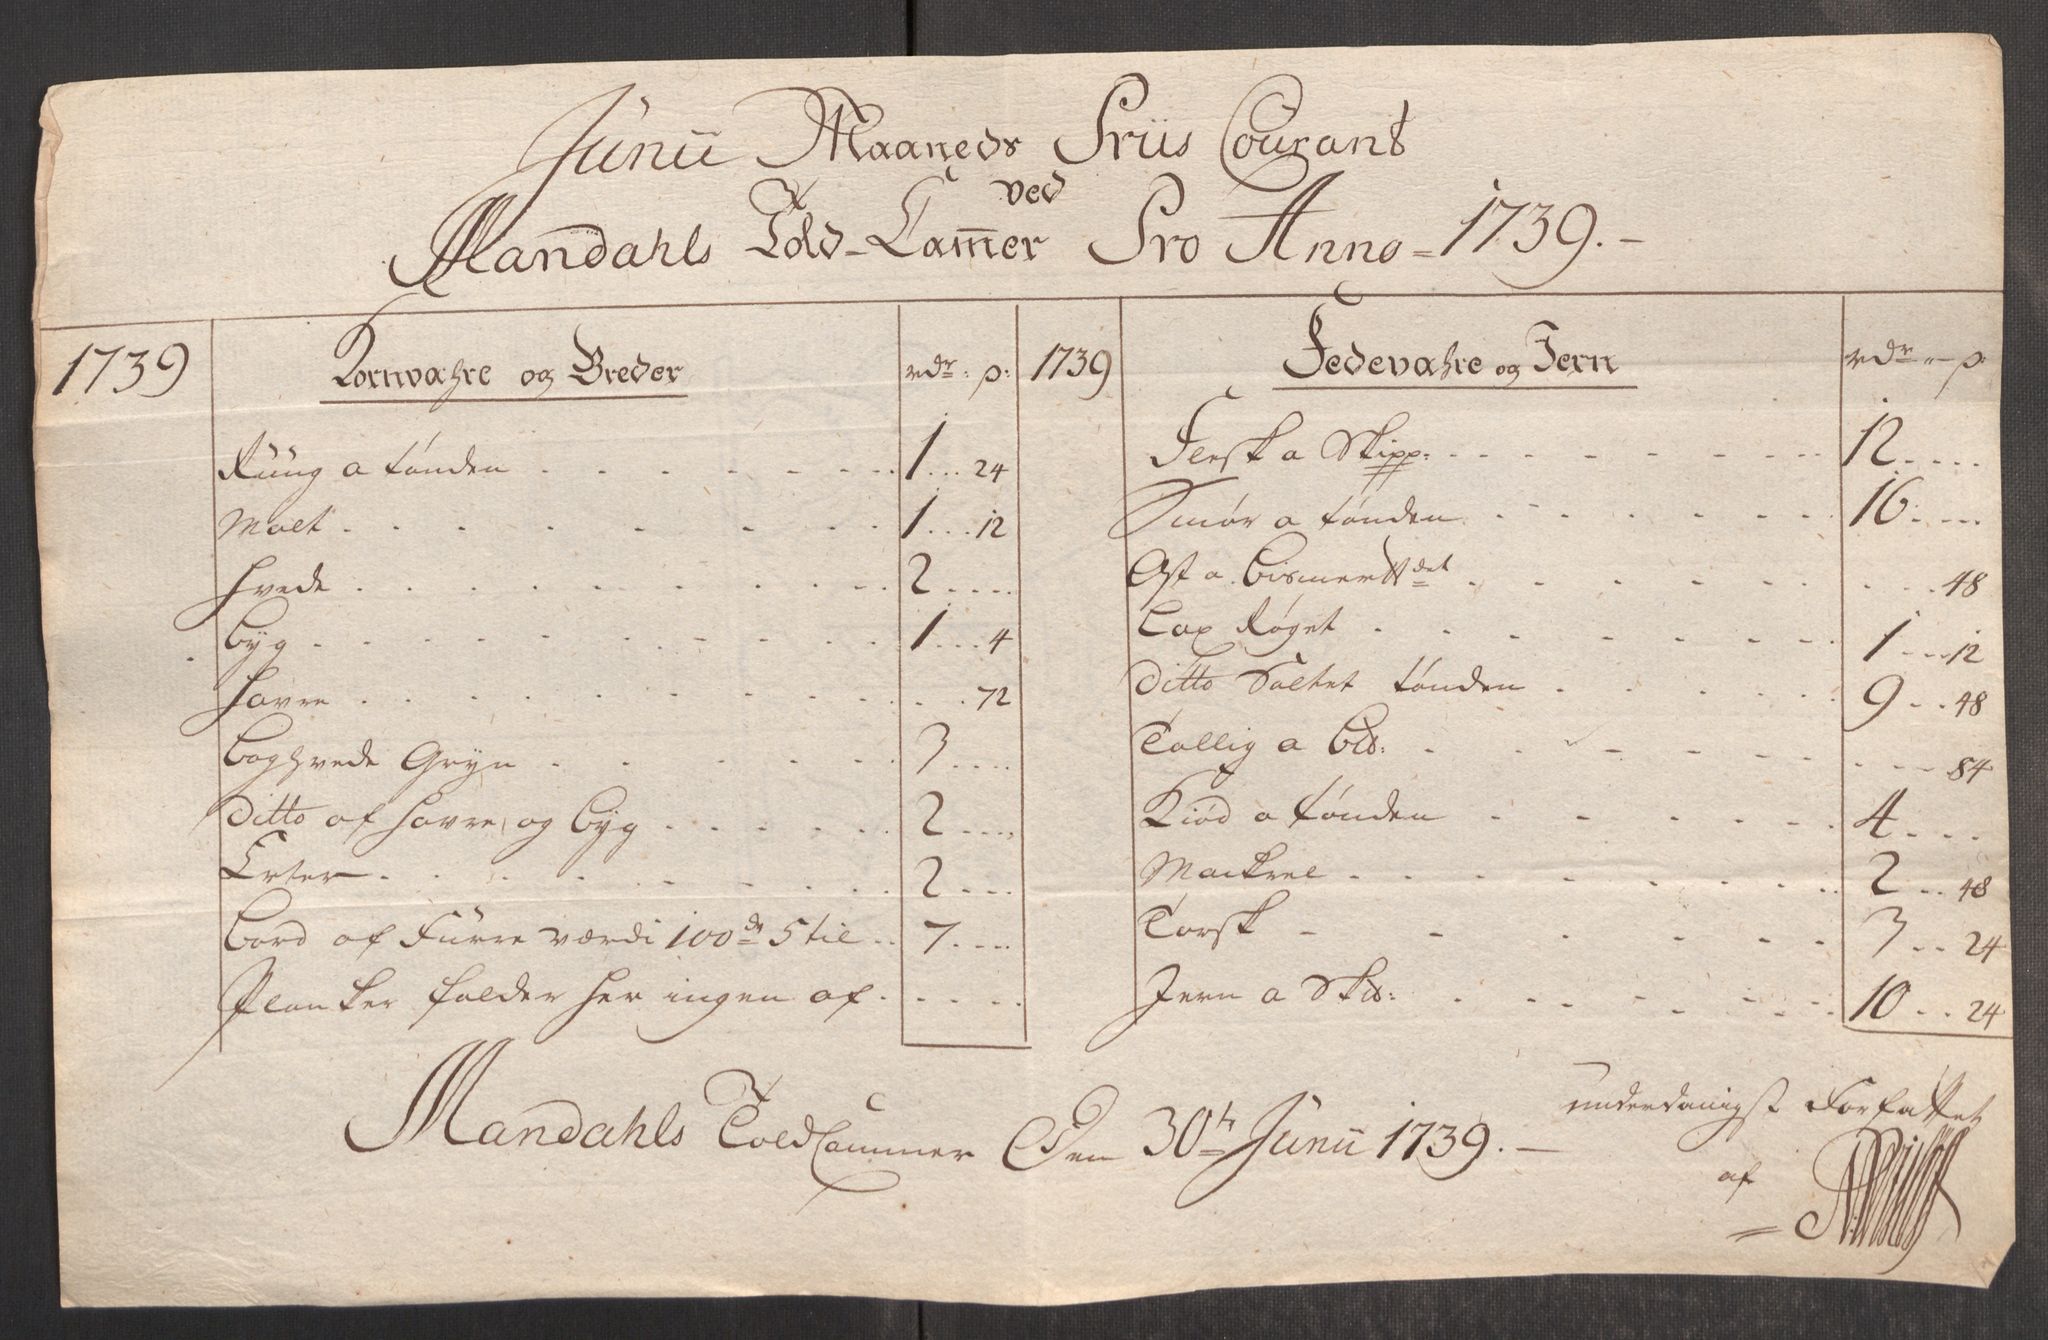 Junii Maaneds Priis Courant
ved
Mandahls Told-Cam̅er Pro Anno = 1739. -
1739 Kornvahre og Breder rdr: p:
Rüüg a tønden 1 24
Malt 1 12
Hvede 2
Byg 1 4
Havre 72
Boghvede Gryn 3
Ditto af Havre, og Byg 2
Erter 2
Bord af Fürre værdi 100de 5 til 7
Planker falder her ingen af
1739 Fedevahre og Jern rdr p:
Flesk a Skipp: 12
Smør a tønden 16
Ost a Bismer℔det 48
Lax Røget 1 12
Ditto Saltet tønden 9 48
Tallig a B℔: 84
Kiød a tønden 4
Mackrel 2 48
Torsk 3 24
Jern a Sk℔: 10 24
Mandahls ToldCammer Den 30te Junii 1739. -
underdanigst Forfattet
af